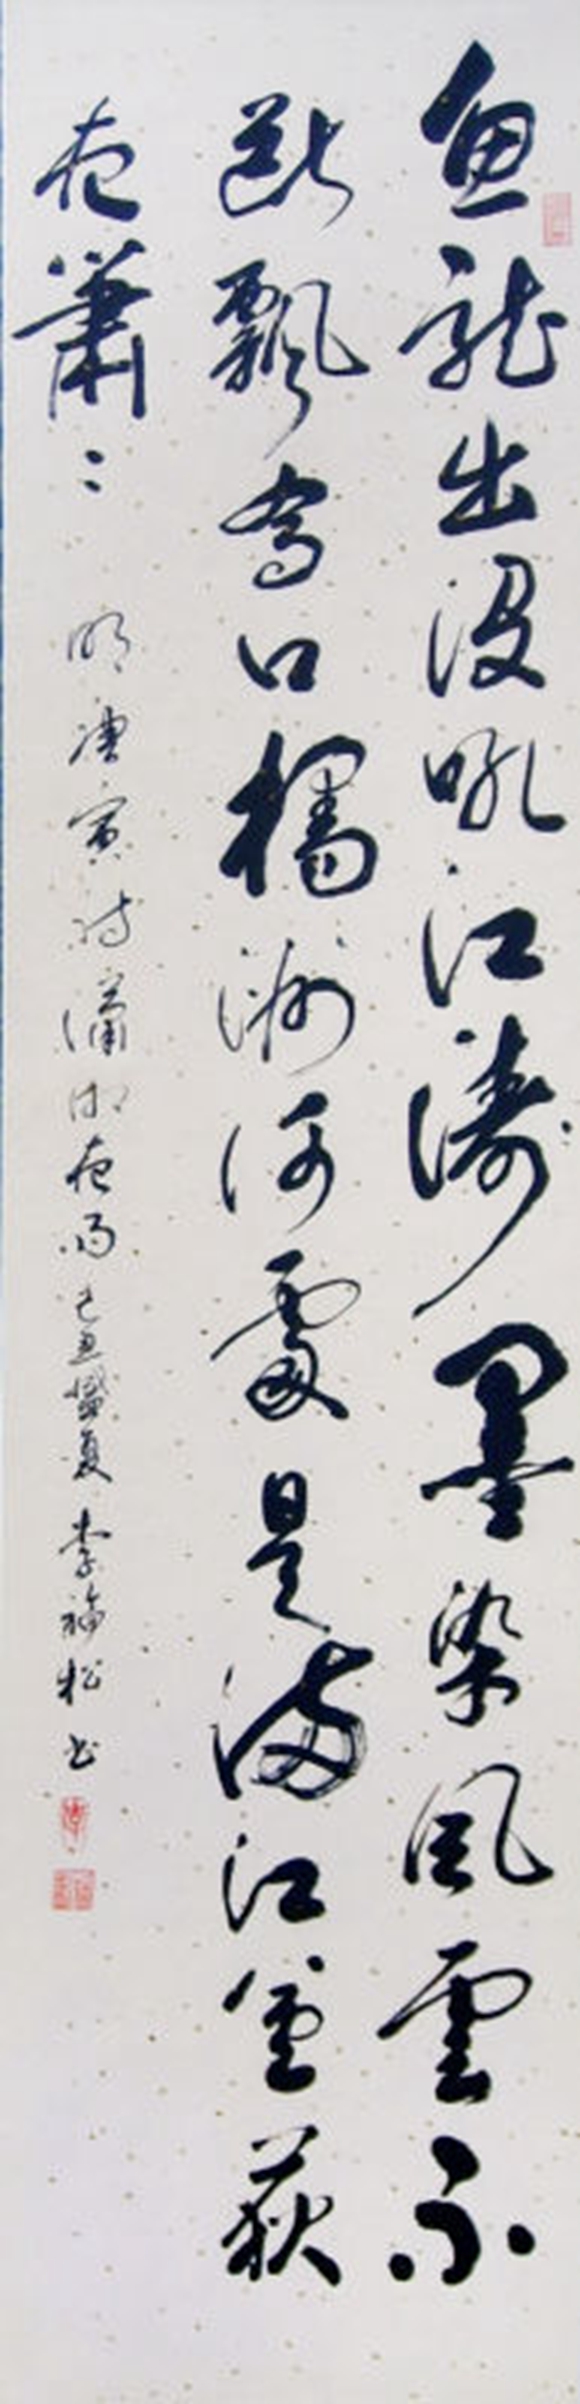 魚龍出沒吼江濤墨染風雲不
斷飄寄口橘洲何處是滿江蘆荻
夜蕭〻 明唐寅詩瀟湘夜雨 己丑盛夏 李福松書